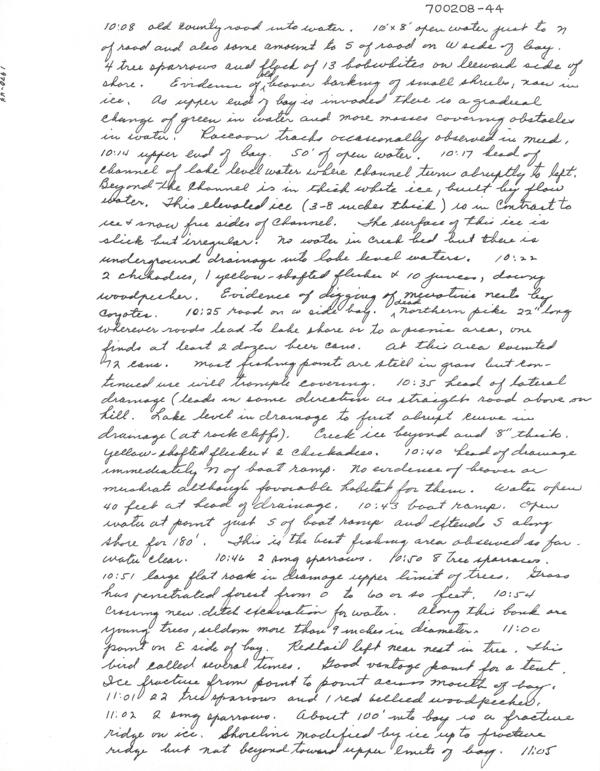 700208-44
10:08 old county road into water. 10'x8' open water just to N
of road and also some amount to S of road on W side of bay.
4 tree sparrows and flock of 13 bobwhites on leeward side of
shore. Evidence of old beaver barking of small shrubs, now in
ice. As upper end of bay is invaded there is a gradual
change of green in water and more mosses covering obstacles
in water. Raccoon tracks occasionally observed in mud.
10:14 upper end of bay. 50' of open water. 10:17 head of
channel of lake level water where channel turn abruptly to left.
Beyond the channel is in thick white ice, built by flow
water. This elevated ice (3-8 inches thick) is in contrast to
ice & snow free sides of channel. The surface of this ice is
slick but irregular. No water in creek bed but there is
underground drainage into lake level waters. 10:22
2 chickadees, 1 yellow-shafted flicker & 10 juncos, downy
woodpecker. Evidence of digging of microtine nests by
coyotes. 10:25 road on W side bay. dead Northern pike 22" long
wherever roads lead to lake shore or to a picnic area, one
finds at least 2 dozen beer cans. At this area counted
72 cans. Most fishing point are still in grass but con-
tinued use will trample covering. 10:35 head of lateral
drainage (leads in some direction as straight road above on
hill. Lake level in drainage to first abrupt curve in
drainage (at rock cliffs). Creek ice beyond and 8" thick.
yellow-shafted flicker & 2 chickadees. 10:40 head of drainage
immediately N of boat ramp. No evidence of beaver or
muskrat although favorable habitat for them. Water open
40 feet at head of drainage. 10:43 boat ramp. Open
water at point just S of boat ramp and extends S along
shore for 180'. This is the best fishing area observed so far.
water clear. 10:46 2 song sparrows. 10:50 8 tree sparrows.
10:51 large flat rock in drainage upper limit of trees. Grass
has penetrated forest from 0 to 60 or so feet. 10:54
Crossing new ditch excavation for water. Along this bank are
young trees, seldom more than 9 inches in diameter. 11:00
point on E side of bay. Redtail left near nest in tree. This
bird called several times. Good vantage point for a tent.
Ice fracture from point to point across mouth of bay.
11:01 22 tree sparrows and 1 red bellied woodpecker.
11:02 2 song sparrows. About 100' into bay is a fracture
ridge on ice. Shoreline modified by ice up to fracture
ridge but not beyond toward upper limits of bay. 11:05